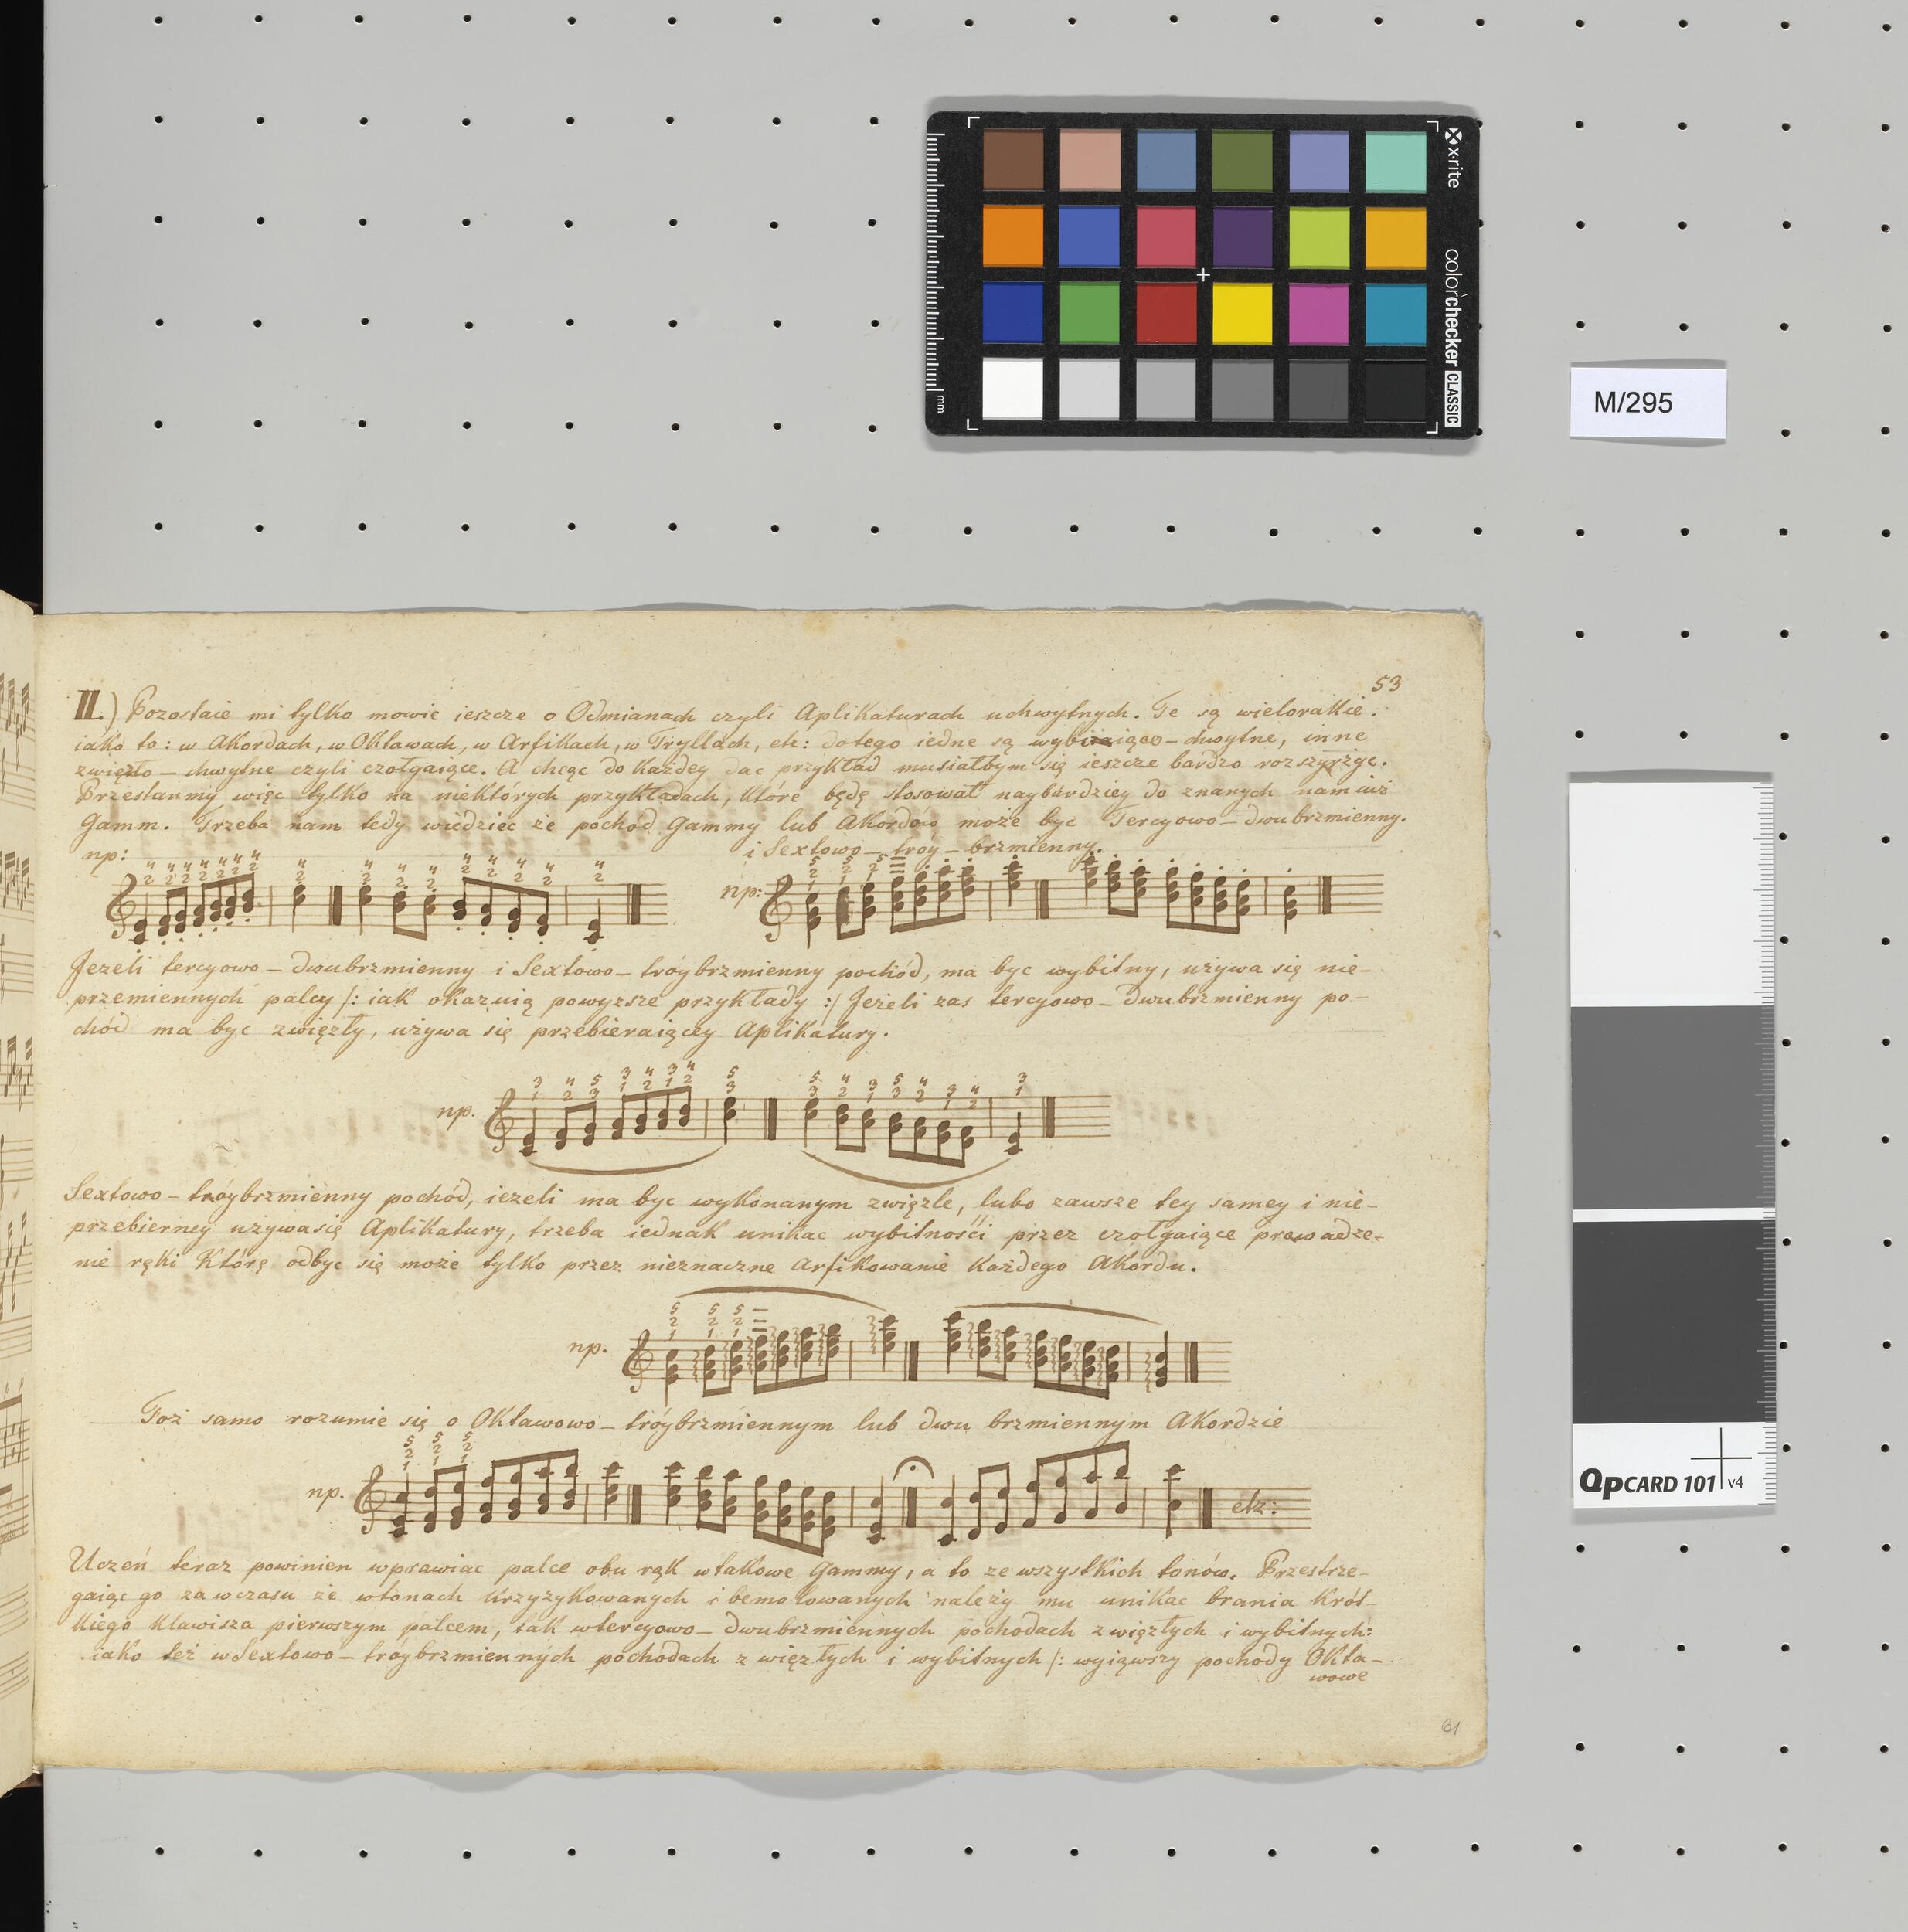 x·rite
colorchecker CLASSIC
mm
M/295
53
II.) Pozostaie mi tylko mowic ieszcze o Odmianach czyli Aplikaturach uchwytnych. Te są wielorakie.
iáko to: w Akordach, w Oktawach, w Arfikach, w Tryllach, etc: dotego iedne są - chwytne, inne
zwięzło - chwytne czyli czołgaiące. A chcąc do każdey dac przykład musiałbym się ieszcze bardzo rozszyrzyc.
Przestanmy więc tylko na niektórych przykładach, które będę stosował naybardziey do znanych nam iuż
Gamm. Trzeba nam tedy wiedziec że pochód Gammy lub Akordow może byc Tercyowo - dwubrzmienny.
i Sextowo - troy - brzmienny.
np:
4 4 4 4 4 4 4 4 4 4 4 4 4 4 4 4
2 2 2 2 2 2 2 2 2 2 2 2 2 2 2 2
np:
5 5 5
2 2 2
1 1 1
Jezeli tercyowo - dwubrzmienny i Sextowo - tróybrzmienny pochód, ma byc wybitny, używa się nie-
przemiennych palcy /: iak okazuią powyzsze przykłady :/ Jeżeli zas tercyowo - dwubrzmienny po-
chód ma byc zwięzły, używa się przebieraiącey Aplikatury.
np.
3 4 5 3 4 3 4 5 5 4 3 5 4 3 4 3
1 2 3 1 2 1 2 3 3 2 1 3 2 1 2 1
Sextowo - tróybrzmienny pochód, iezeli ma byc wykonanym zwięzle, lubo zawsze tey samey i nie-
przebierney używa się Aplikatury, trzeba iednak unikac wybitności przez czołgaiące prowadze-
nie ręki Którę odbyc się może tylko przez nieznaczne Arfikowanie Każdego Akordu.
np.
5 5 5
2 2 2
1 1 1
Toż samo rozumie się o Oktawowo - tróybrzmiennym lub dwu brzmiennym Akordzie
np.
5 5 5
2 2 2
1 1 1
etz:
Uczeń teraz powinien wprawiac palce obu rąk w takowe Gammy, a to ze wszystkich tonów. Przestrze-
gaiąc go zawczasu że w tonach krzyzykowanych i bemolowanych należy mu unikac brania Krót-
kiego Klawisza pierwszym palcem, tak w tercyowo - dwubrzmiennych pochodach zwięzłych i wybitnych:
iako też w Sextowo - tróybrzmiennych pochodach zwięzłych i wybitnych /: wyiąwszy pochody Okta-
wowe
61
QPCARD 101 v4